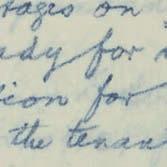 rages on
ady for
ion for
the tenan